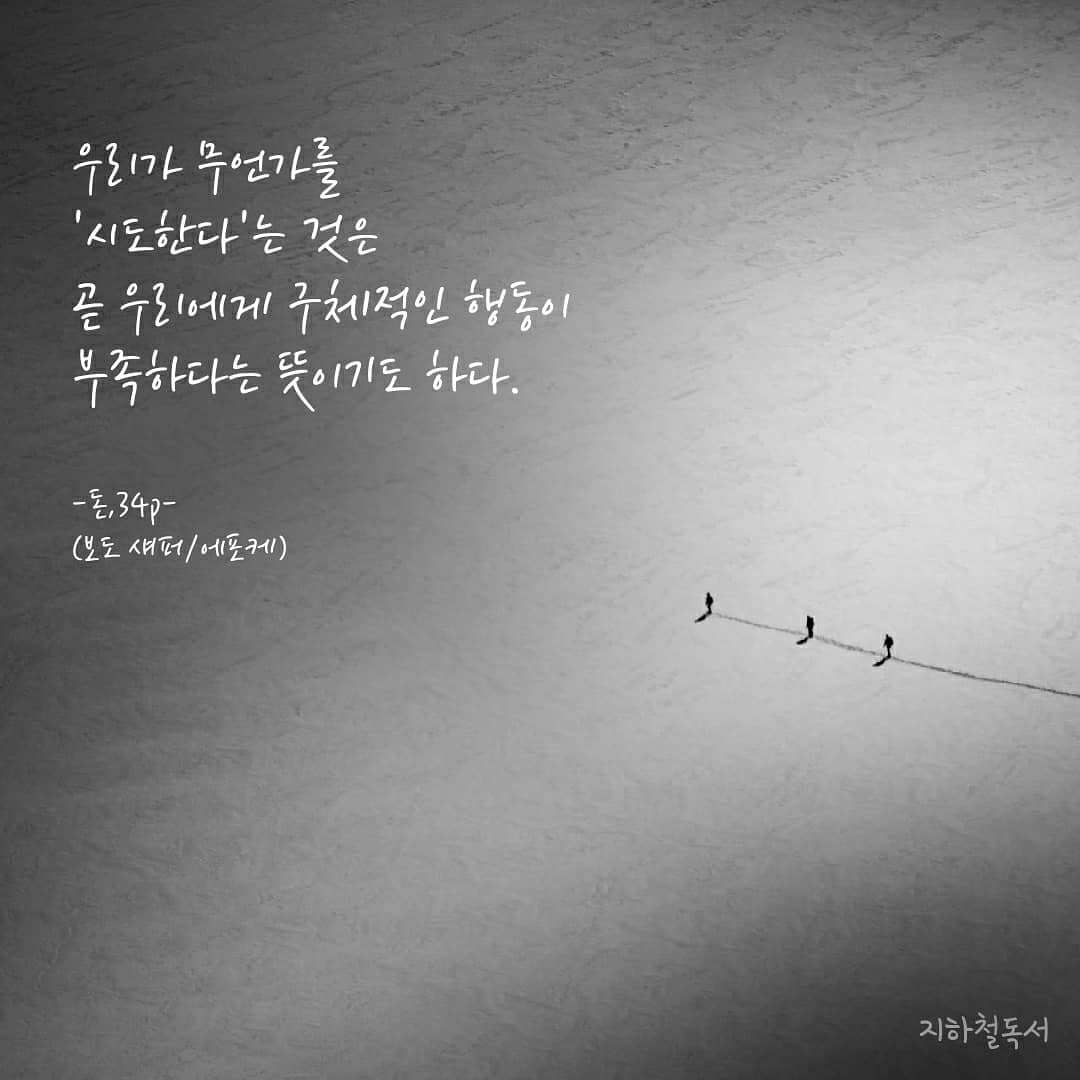 우리가 무언가를
'시도한다'는 것은
곧 우리에게 구체적인 행동이
부족하다는 뜻이기도 하다.
-돈,34p-
(보도 섀퍼/에포케)
지하철독서